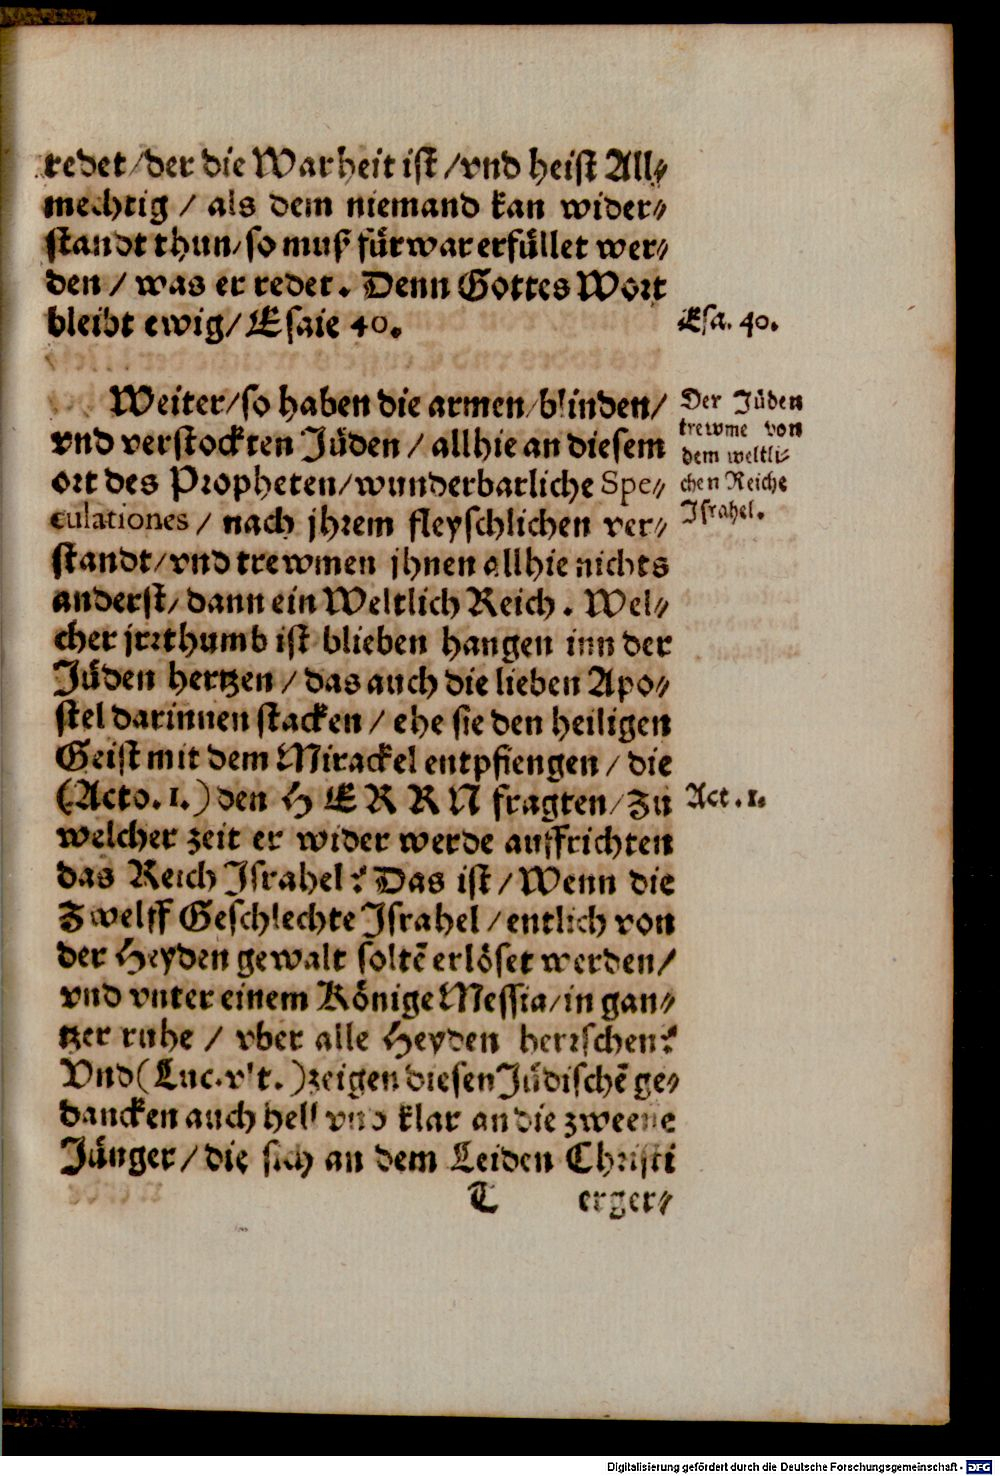 redet / der die Warheit ist / vnd heist All⸗
mechtig / als dem niemand kan wider⸗
standt thun / so muß fürwar erfüllet wer⸗
den / was er redet. Denn Gottes Wort
bleibt ewig / Esaie 40.
Esa. 40.
Weiter / so haben die armen / blinden /
vnd verstockten Jüden / allhie an diesem
ort des Propheten / wunderbarliche Spe⸗
culationes / nach jhrem fleyschlichen ver⸗
standt / vnd trewmen jhnen allhie nichts
anderst / dann ein Weltlich Reich. Wel⸗
cher jrrthumb ist blieben hangen inn der
Jüden hertzen / das auch die lieben Apo⸗
stel darinnen stacken / ehe sie den heiligen
Geist mit dem Mirackel entpfiengen / die
(Acto. 1.) den HERRN fragten / Zu
welcher zeit er wider werde auffrichten
das Reich Israhel? Das ist / Wenn die
Zwelff Geschlechte Israhel / entlich von
der Heyden gewalt soltẽ erlöset werden /
vnd vnter einem Könige Messia / in gan⸗
tzer ruhe / vber alle Heyden herrschen?
Vnd (Luc. vlt.) zeigen diesen Jüdischẽ ge⸗
dancken auch hell vnd klar an die zweene
Jünger / die sich an dem Leiden Christi
Der Jüden
trewme von
dem weltli⸗
chen Reiche
Israhel.
Act. 1.
T erger⸗
Digitalisierung gefördert durch die Deutsche Forschungsgemeinschaft - DFG